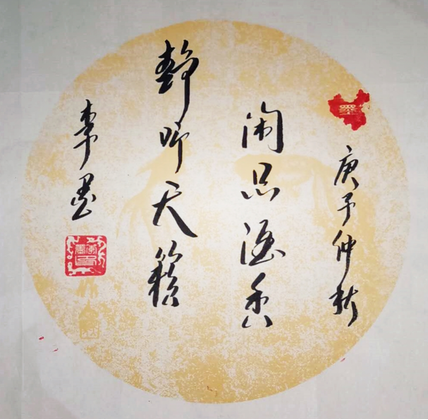 庚子仲秋
闲品香
静听天籁
李墨